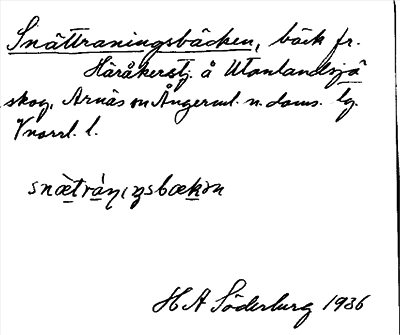 Snättraningsbäcken, bäck fr.
Häråkerstj. å Utanlandsjö
skog, Arnäs sn Ångerml. n. doms. tg.
Vnorrl. l.
snætránıŋsbækən
H A Söderburg 1936